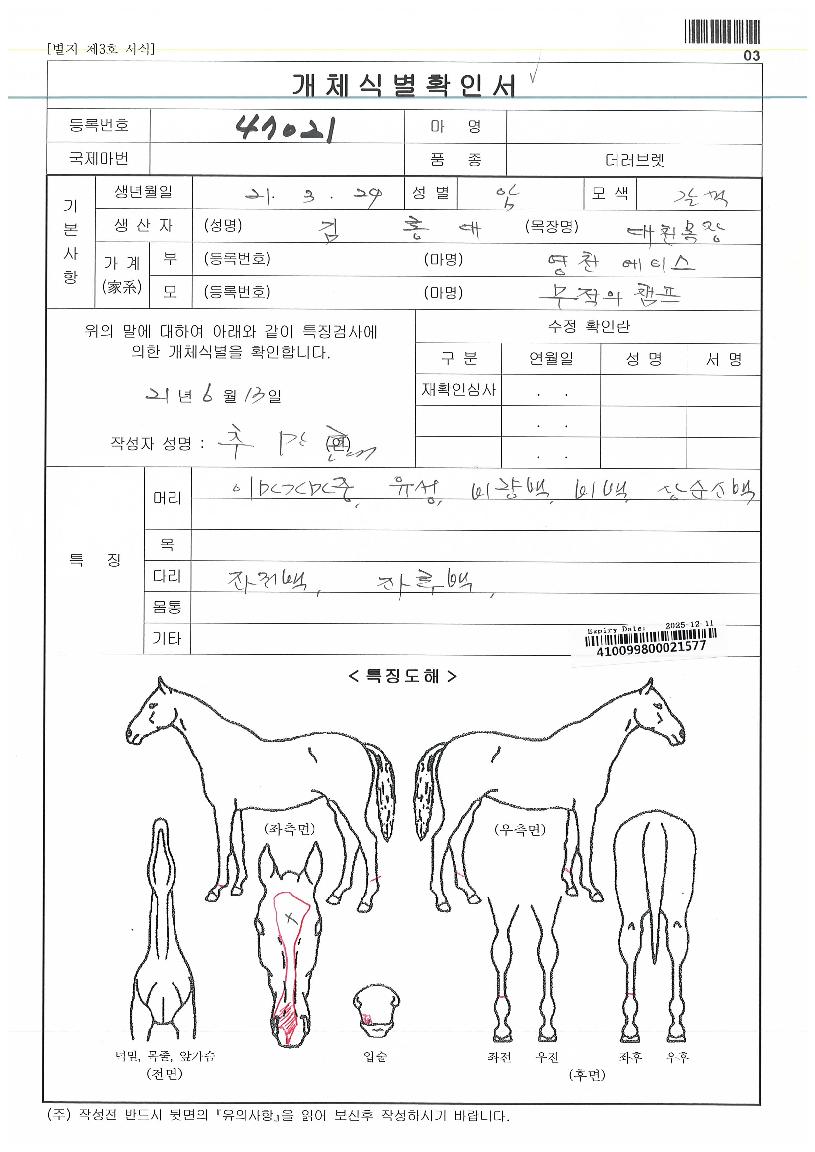 [별지 제3호 서식]
03
개체식별확인서
등록번호 47021 마 명
국제마번 품 종 더러브렛
기본사항
생년월일 21. 3. 29 성 별 암 모 색 갈색
생 산 자 (성명) 김 홍 대 (목장명) 대환목장
가 계 (家系) 부 (등록번호) (마명) 영천 에이스
모 (등록번호) (마명) 무적의 캠프
위의 말에 대하여 아래와 같이 특징검사에
의한 개체식별을 확인합니다.
21 년 6 월 13 일
작성자 성명 : 추
수정 확인란
구 분 연월일 성 명 서 명
재확인심사 . .
. .
. .
특 징
머리 유성, 비량백, 비백, 상순소백
목
다리 좌전백, 좌후백,
몸통
기타
Expiry Date: 2025-12-11
410099800021577
< 특징도해 >
(좌측면) (우측면)
턱밑, 목줄, 앞가슴 입술 좌전 우전 좌후 우후
(전면) (후면)
(주) 작성전 반드시 뒷면의 『유의사항』을 읽어 보신후 작성하시기 바랍니다.